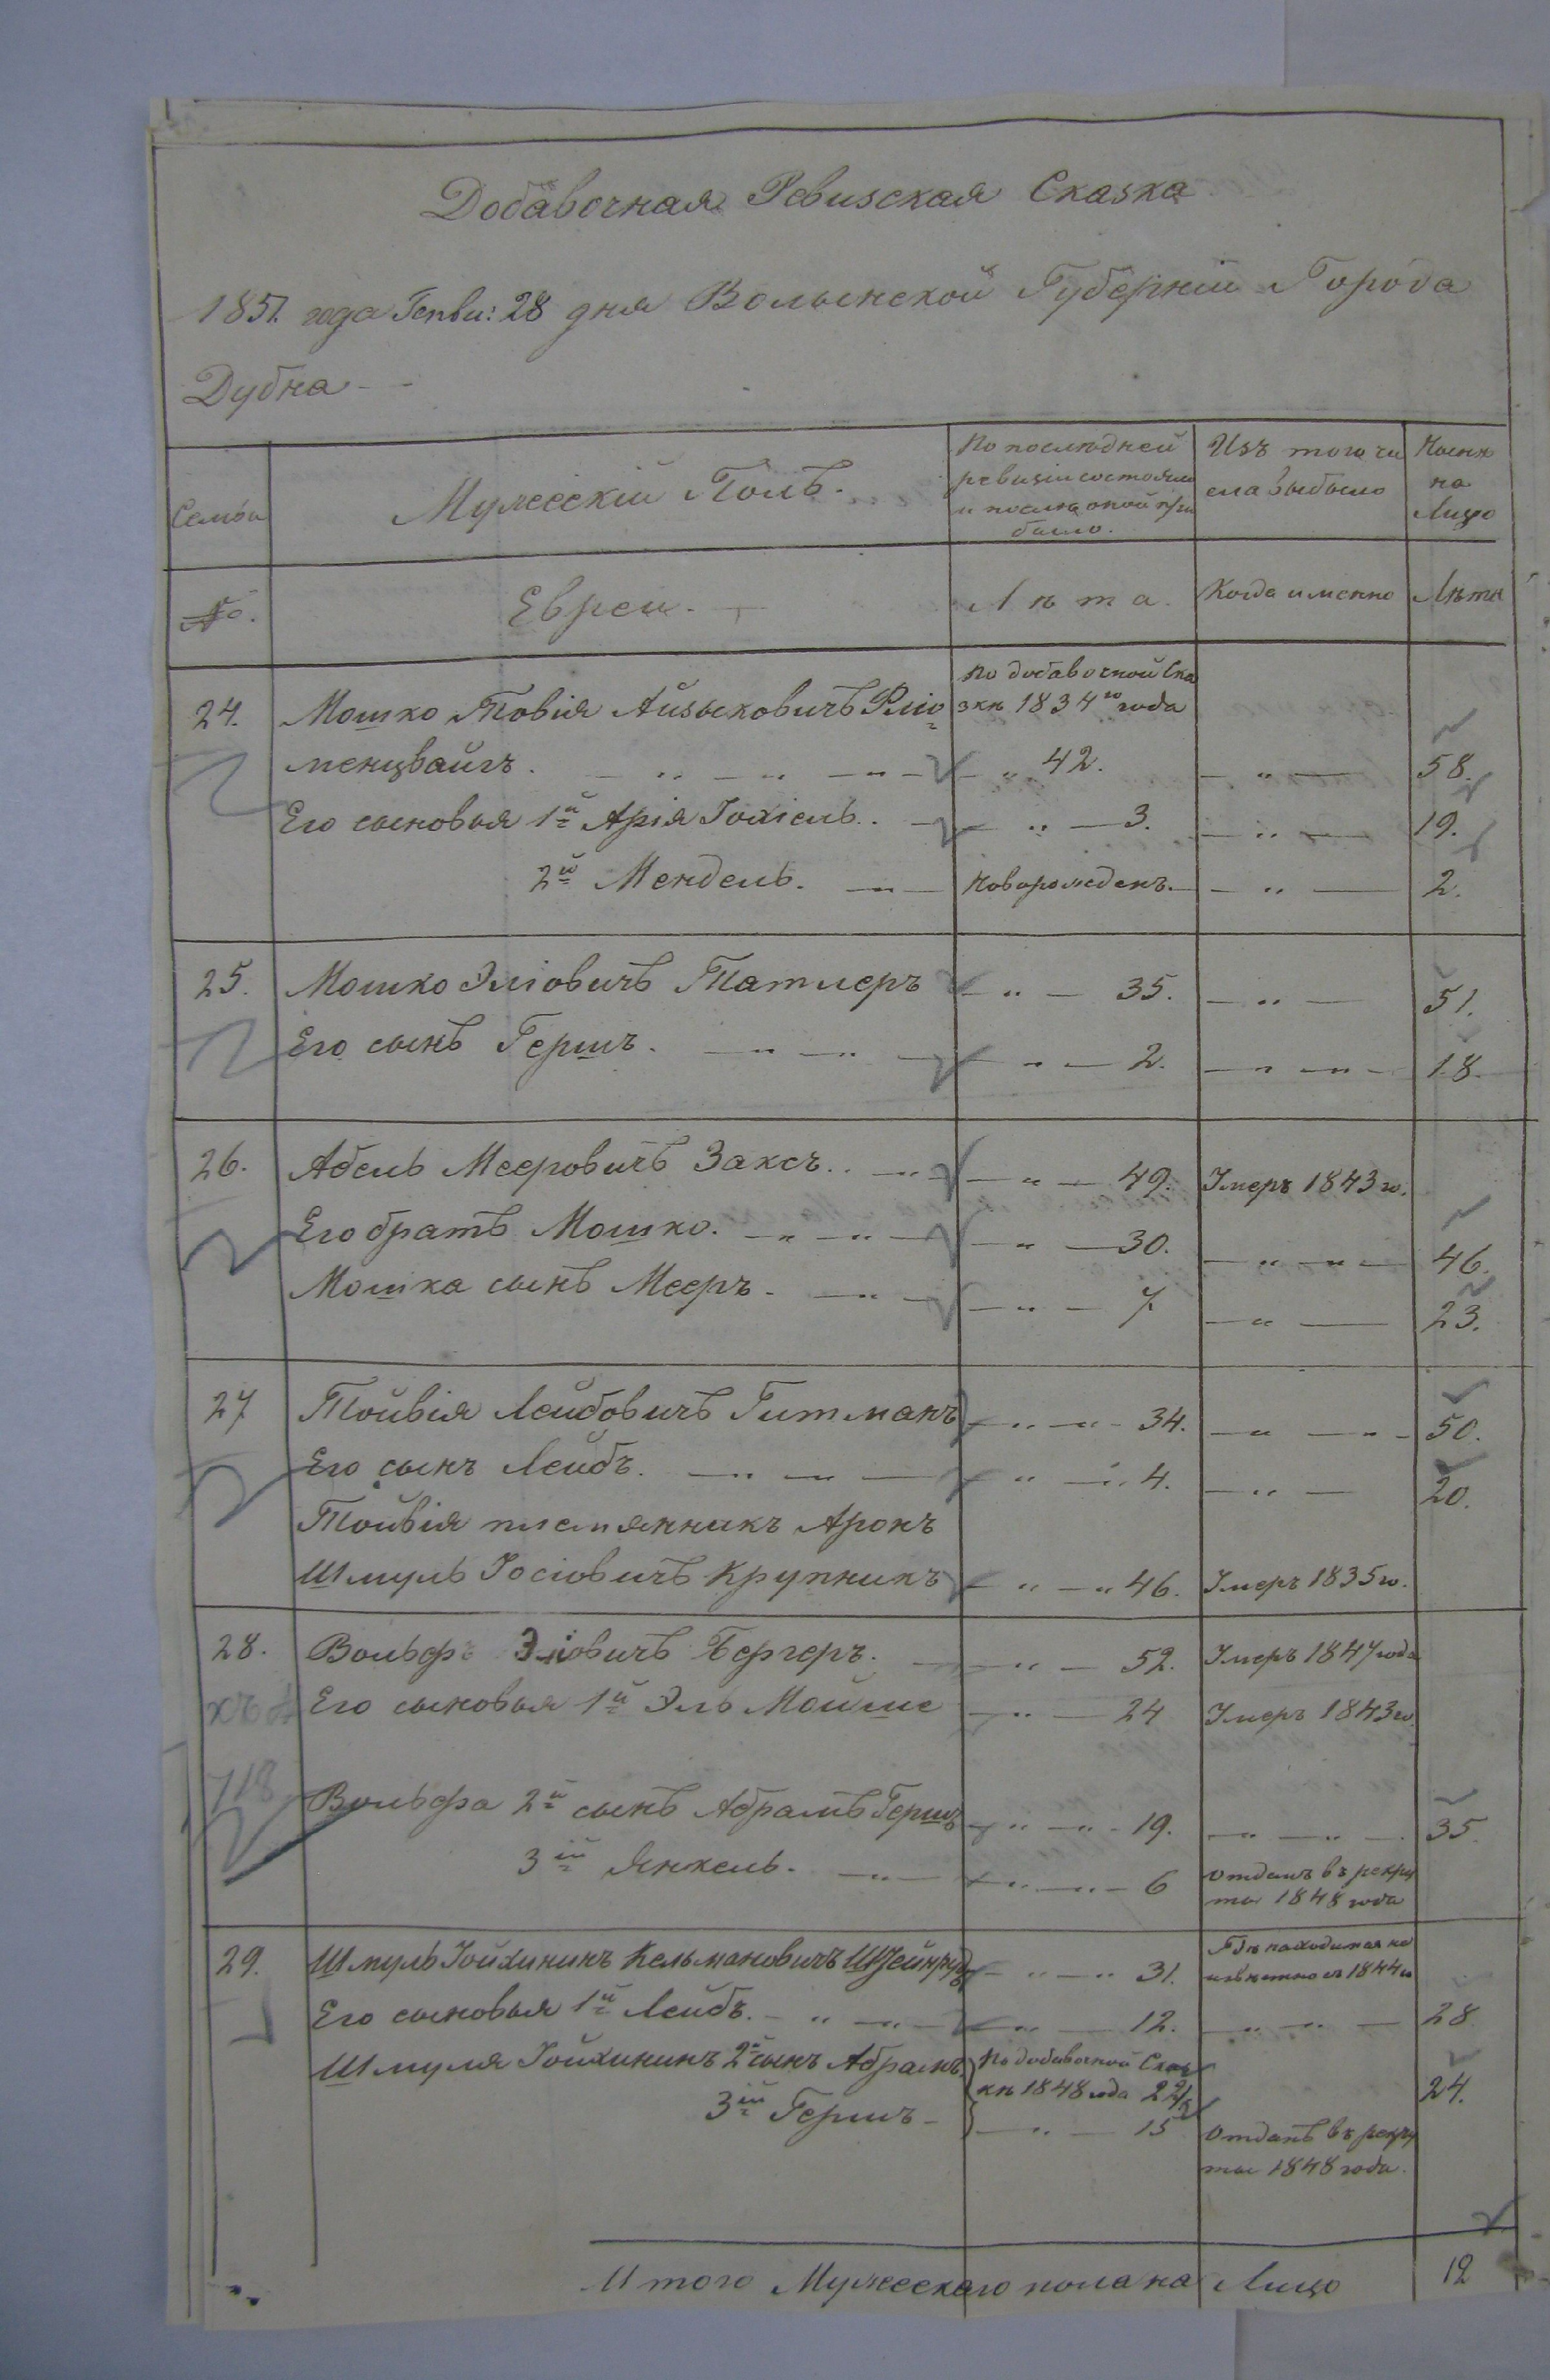 Добавочная Ревизская Сказка
1851 года Генва: 28 дня Волынской Губерніи Города
Дубна
Семьи
Мужескій Полъ.
По послѣдней
ревизіи состояло
и послѣ оной при
было.
Изъ того чи
сла выбыло
Нынѣ
на
Лицо
№.
Евреи.
Лѣта.
Когда именно
Лѣты
По добавочной Ска
24. Мошко Товія Айзыковичъ Блю зкѣ 1834го года
менцвайгъ. 42. 58.
Его сыновья 1й Арія Іохіель. 3. 19.
2й Мендель. новорожденъ. 2.
25. Мошко Эліовичъ Татлеръ 35. 51.
Его сынъ Гершъ. 2. 18.
26. Абель Мееровичъ Заксъ. 49. Умеръ 1843 го.
Его братъ Мошко. 30. 46.
Мошка сынъ Мееръ. 7 23.
27 Тойвія Лейбовичъ Гитманъ 34. 50.
Его сынъ Лейбъ. 4. 20.
Тойвія племянникъ Аронъ
Шмуль Іосіовичъ Крупникъ 46. Умеръ 1835 го.
28. Вольфъ Эліовичъ Бергеръ. 52. Умеръ 1847 года
Его сыновья 1й Эль Мойше 24 Умеръ 1843 го.
718
Вольфа 2й сынъ Абрамъ Гершъ 19. 35.
3ій Янкель. 6 отданъ въ рекру
ты 1848 года
29. Шмуль Іойхининъ Кельмановичъ 31. Гдѣ находится не
извѣстно съ 1844 го
Его сыновья 1й Лейбъ. 12. 28
Шмуля Іойхининъ 2й сынъ Абрамъ. По добавочной Сказ
кѣ 1848 года 22 24.
3ій Гершъ 15 отданъ въ рекру
ты 1848 года.
Итого Мужескаго пола на Лицо 12